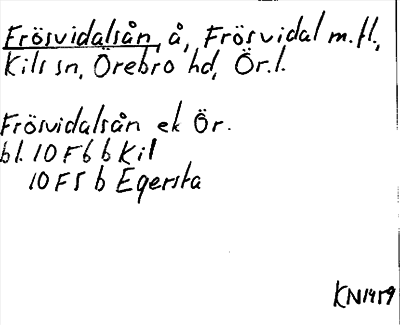 Frösvidalsån, å, Frösvidal m.fl.,
Kils sn, Örebro hd, Ör.l.
Frösvidalsån ek Ör.
bl. 10 F6 b Kil
10 F5 b Egersta
KN1959